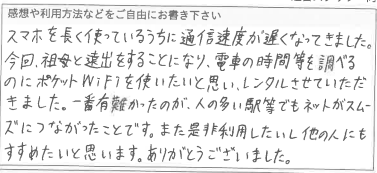 感想や利用方法などをご自由にお書き下さい
スマホを長く使っているうちに通信速度が遅くなってきました。
今回、祖母と遠出をすることになり、電車の時間等を調べる
のにポケットWiFiを使いたいと思い、レンタルさせていただ
きました。一番有難かったのが、人の多い駅等でもネットがスムー
ズにつながったことです。また是非利用したいし他の人にも
すすめたいと思います。ありがとうございました。